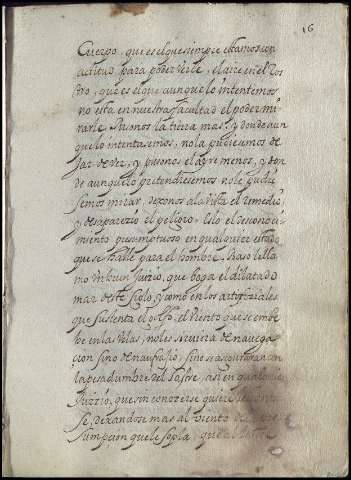 16
Cuerpo, que es el que siempre estamos con
actitud para poder verle, el aire en el Ros
tro, que es el que aunque lo intentemos
no esta en nuestra facultad el poder mi
rarle. Pusonos la tierra mas, y donde aun
que lo intentasemos, no la pudiesemos de
jar de ver, y pusonos el ayre menos, y don
de aunque lo pretendiesemos no le pudie
semos mirar, dexonos a la vista el remedio,
y desaparezio el peligro. Es lo desconoci
miento presumptuoso en qualquiera estado
que se halle para el hombre.
mo un buen Juizio, que boga el dilatado
mar de este siglo, y como en los artifiziales
que sustenta el golfo, el viento que se embe
be en las velas, no les sirviera de navega
cion sino de naufragio, si no se
la pesadumbre del lastre, asi en qualquier
Juizio, que sin conozerse quiere
se, dexandose mas al viento de
sumpcion que le sopla, que al lastre